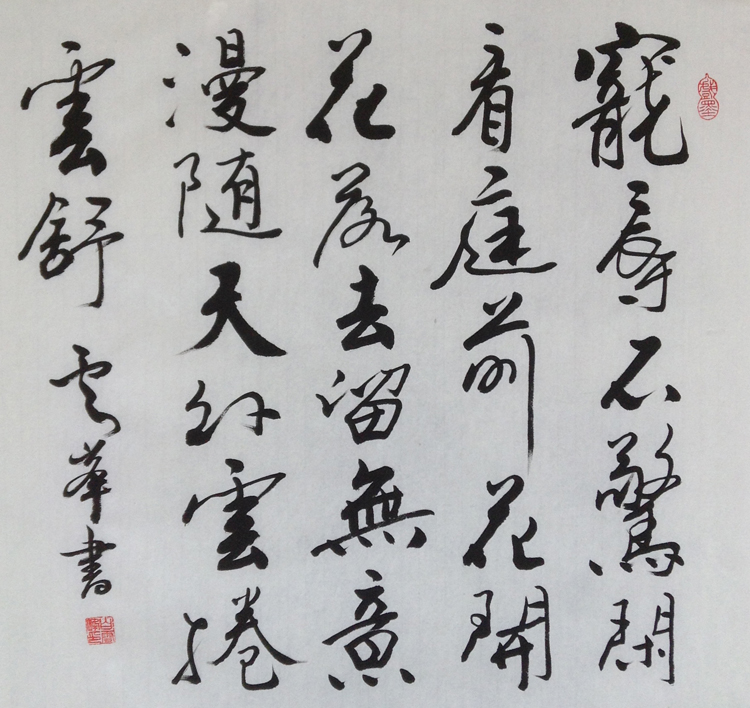 寵辱不驚閑
看庭前花開
花落去留無意
漫随天外雲捲
雲舒 雲華書